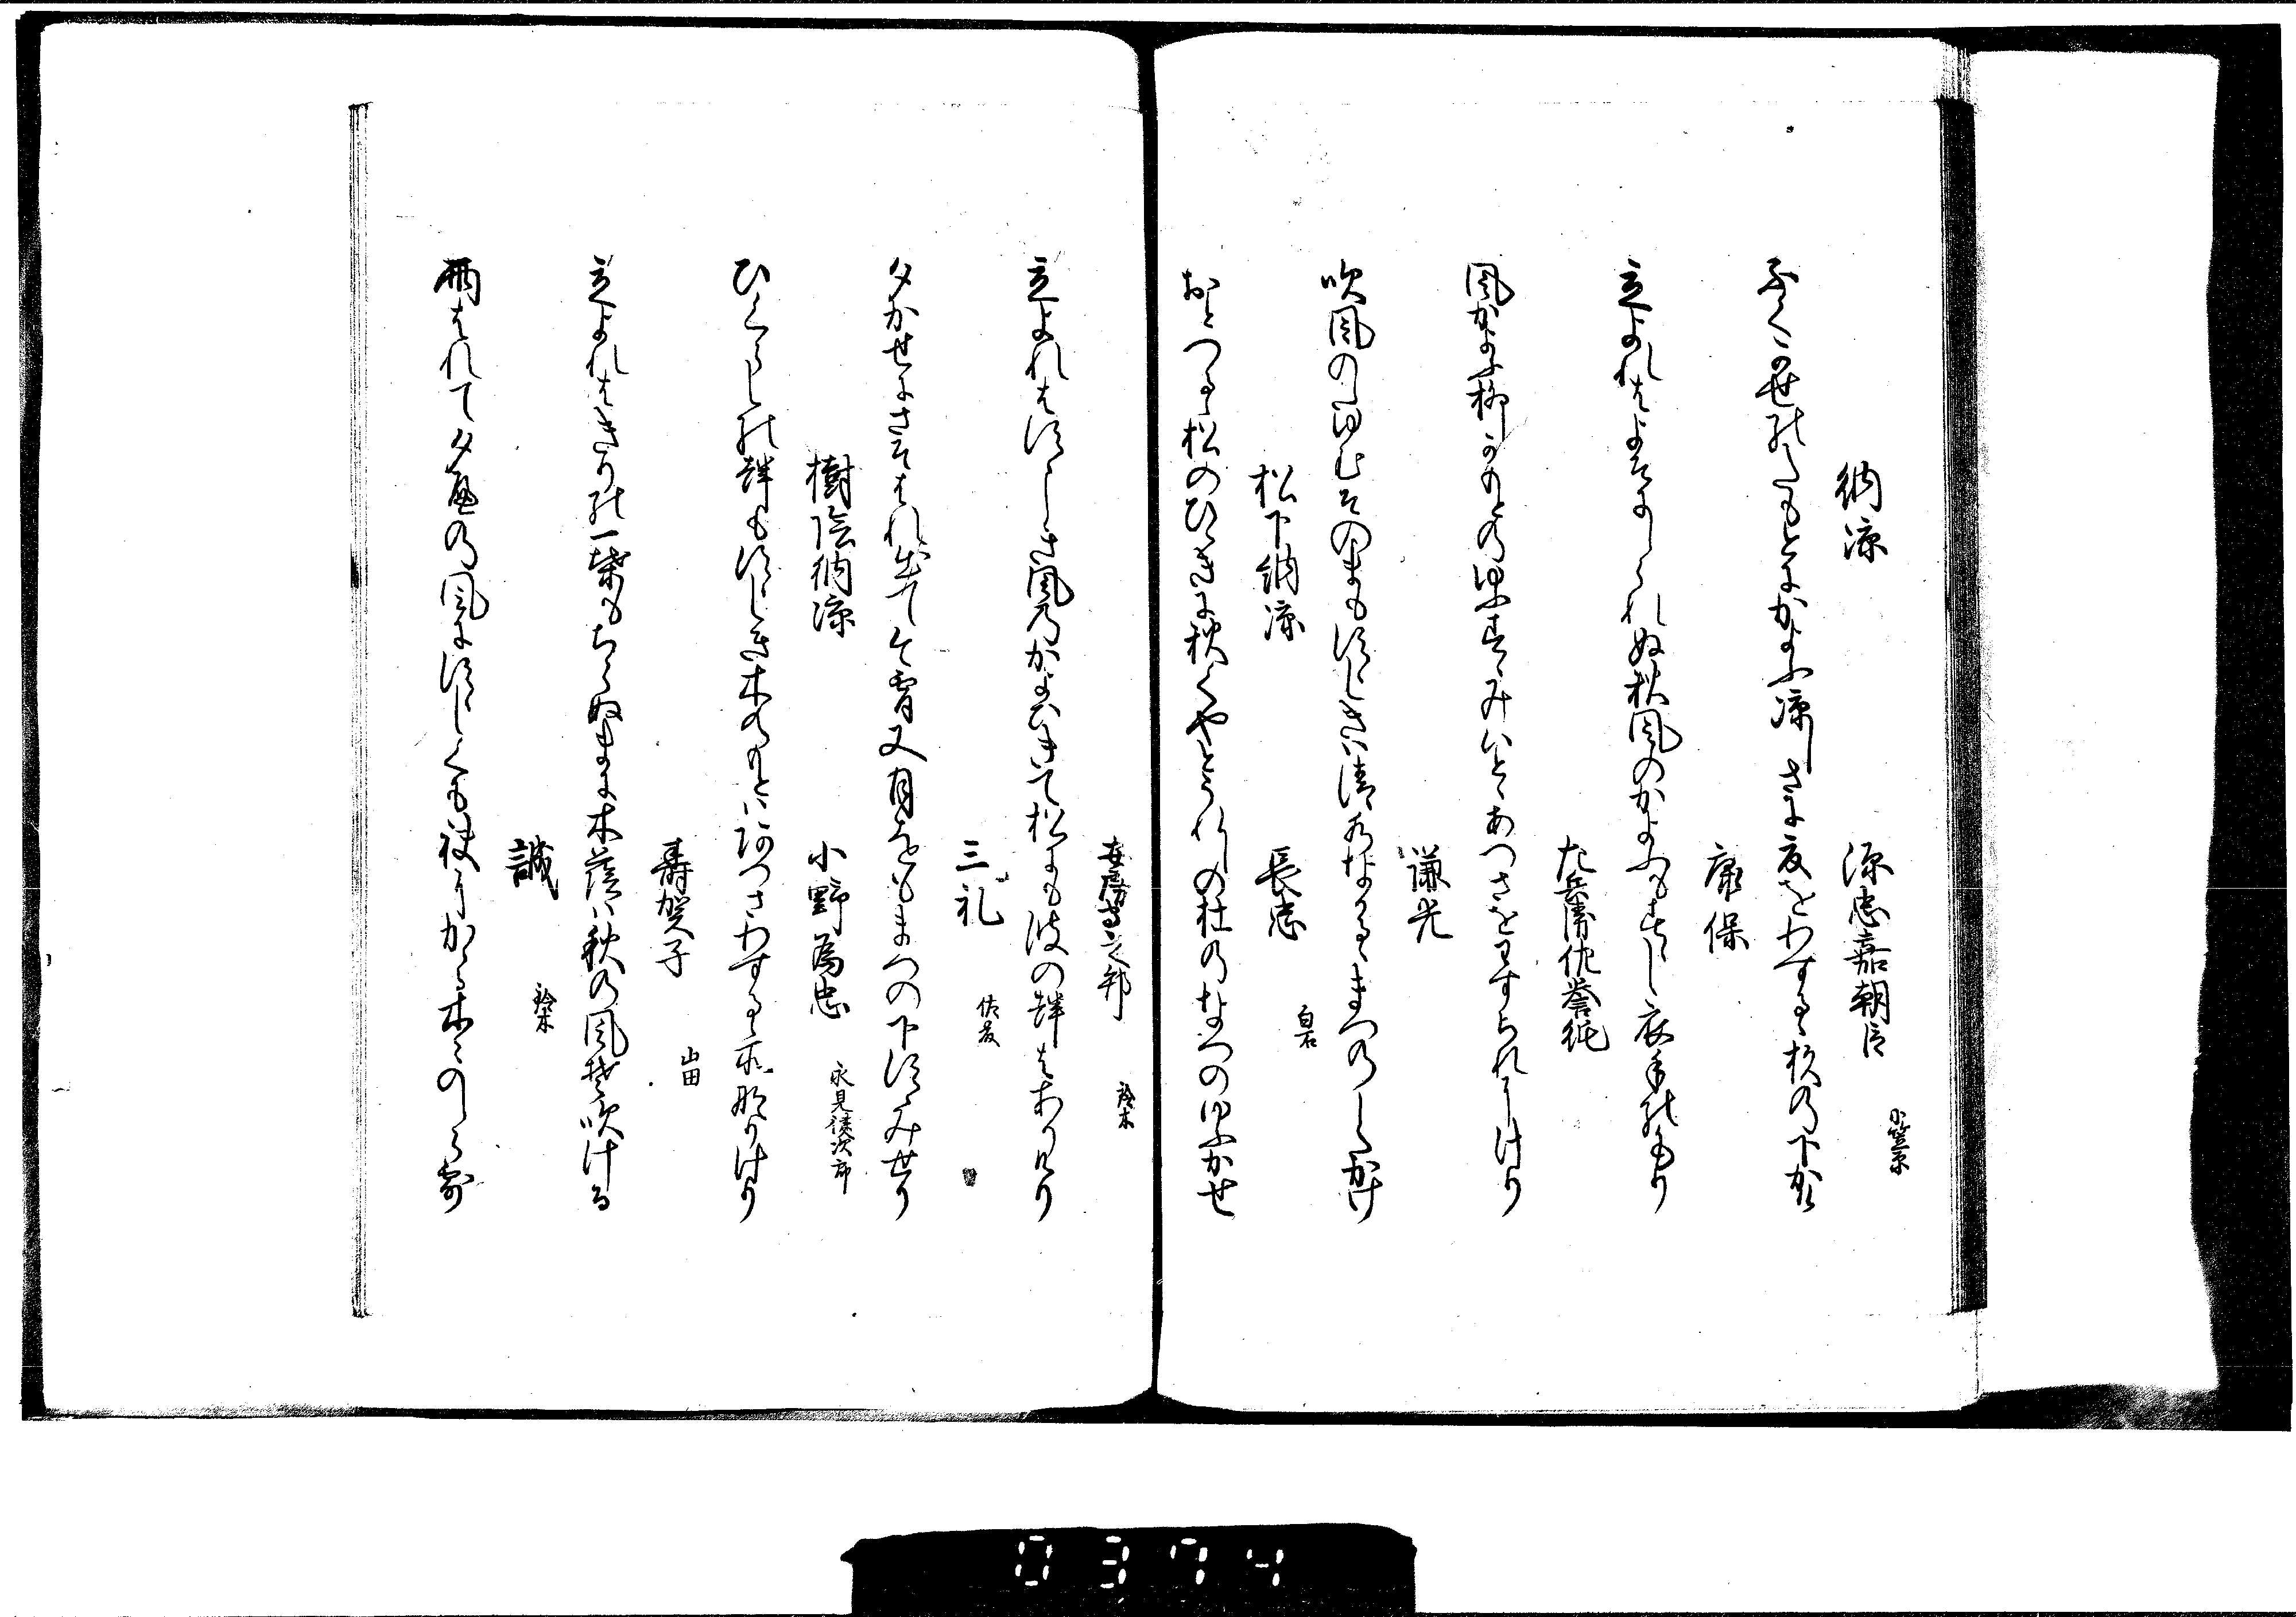 納涼
源忠嘉朝臣 小笠原
ふくかせのたもとにかよふ涼しさに夏をわするゝ杉の下かけ
康保
立よれはよそにしられぬ秋風のかよふもすゝし衣手のもり
左兵衛佐誉純
風かよふ柳かもとの夕すゝみいとゝあつさをわすられにけり
謙光
吹風のしはしそのまもすゝしきは清水なかるゝまつのしたかけ
松下納涼
長忠 白石
おとつるゝ松のひゝきに秋くやとうれしの杜のなつの夕かせ
安房守之邦 鈴木
立よれはすゝしさ風のかよひきて松にも波の声はありけり
三礼 佐々
夕かせにさそはれ出てこよひ又月をもまつの下すゝみせり
樹陰納涼
小野為忠 永見健次郎
ひくらしの声もすゝしき木のもとはあつさわするゝ所なりけり
寿賀子 山田
立よれはきりの一葉もちらぬまに木陰は秋の風そ吹ける
誠 鈴木
雨はれて夕日の風にすゝしくも袂にかゝる木々のしら露
0374